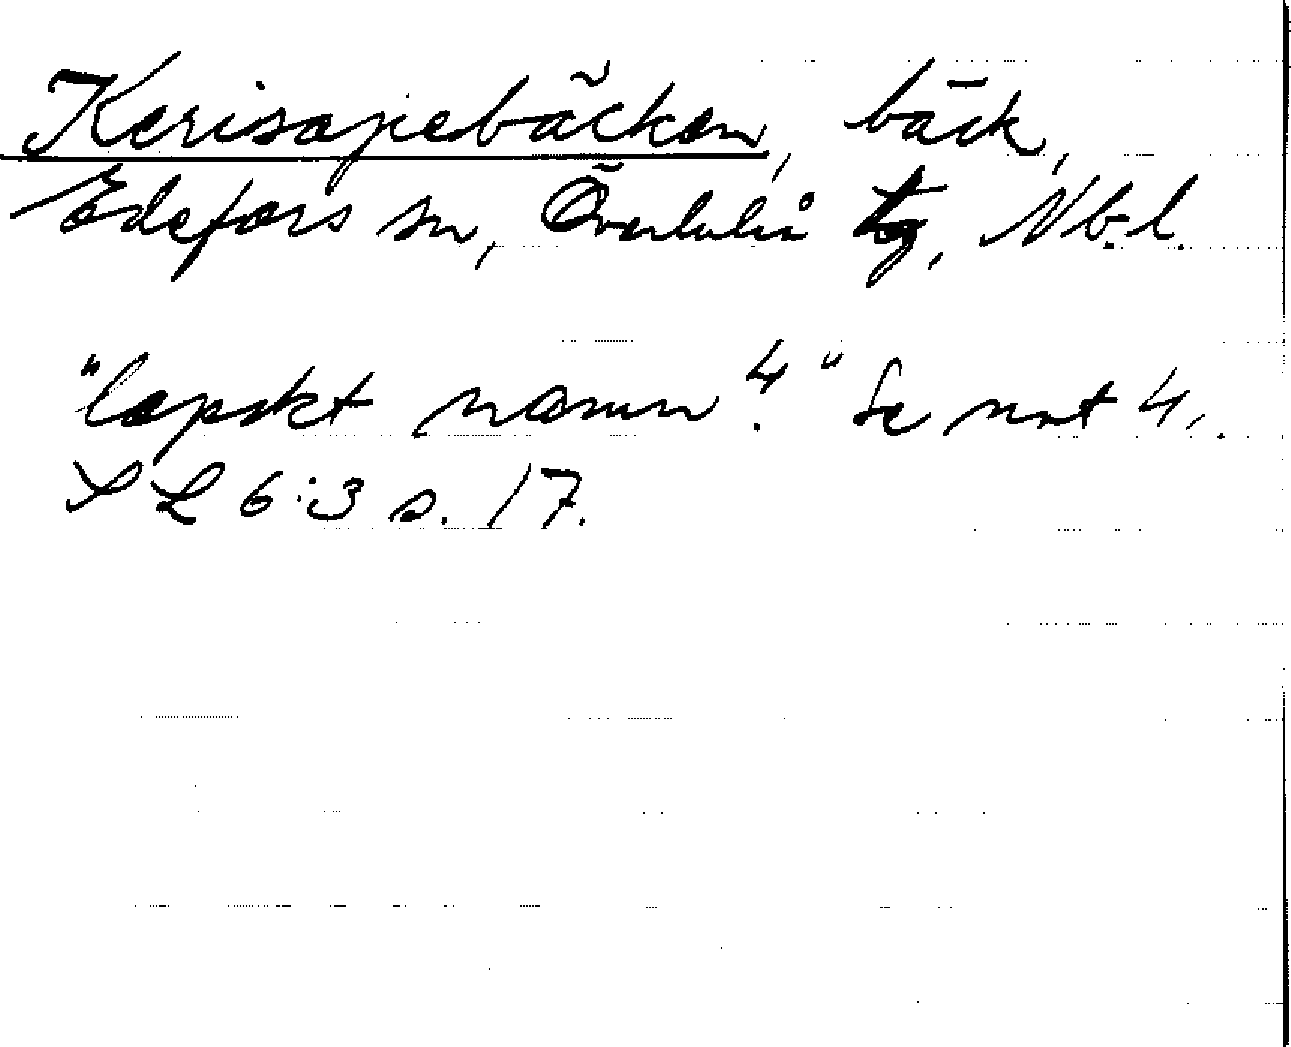 Kerisajiebäcken, bäck,
Edefors sn, Överluleå tg, Nb.l.
"lapskt namn⁴." Se not 4.
SL 6:3 s. 17.